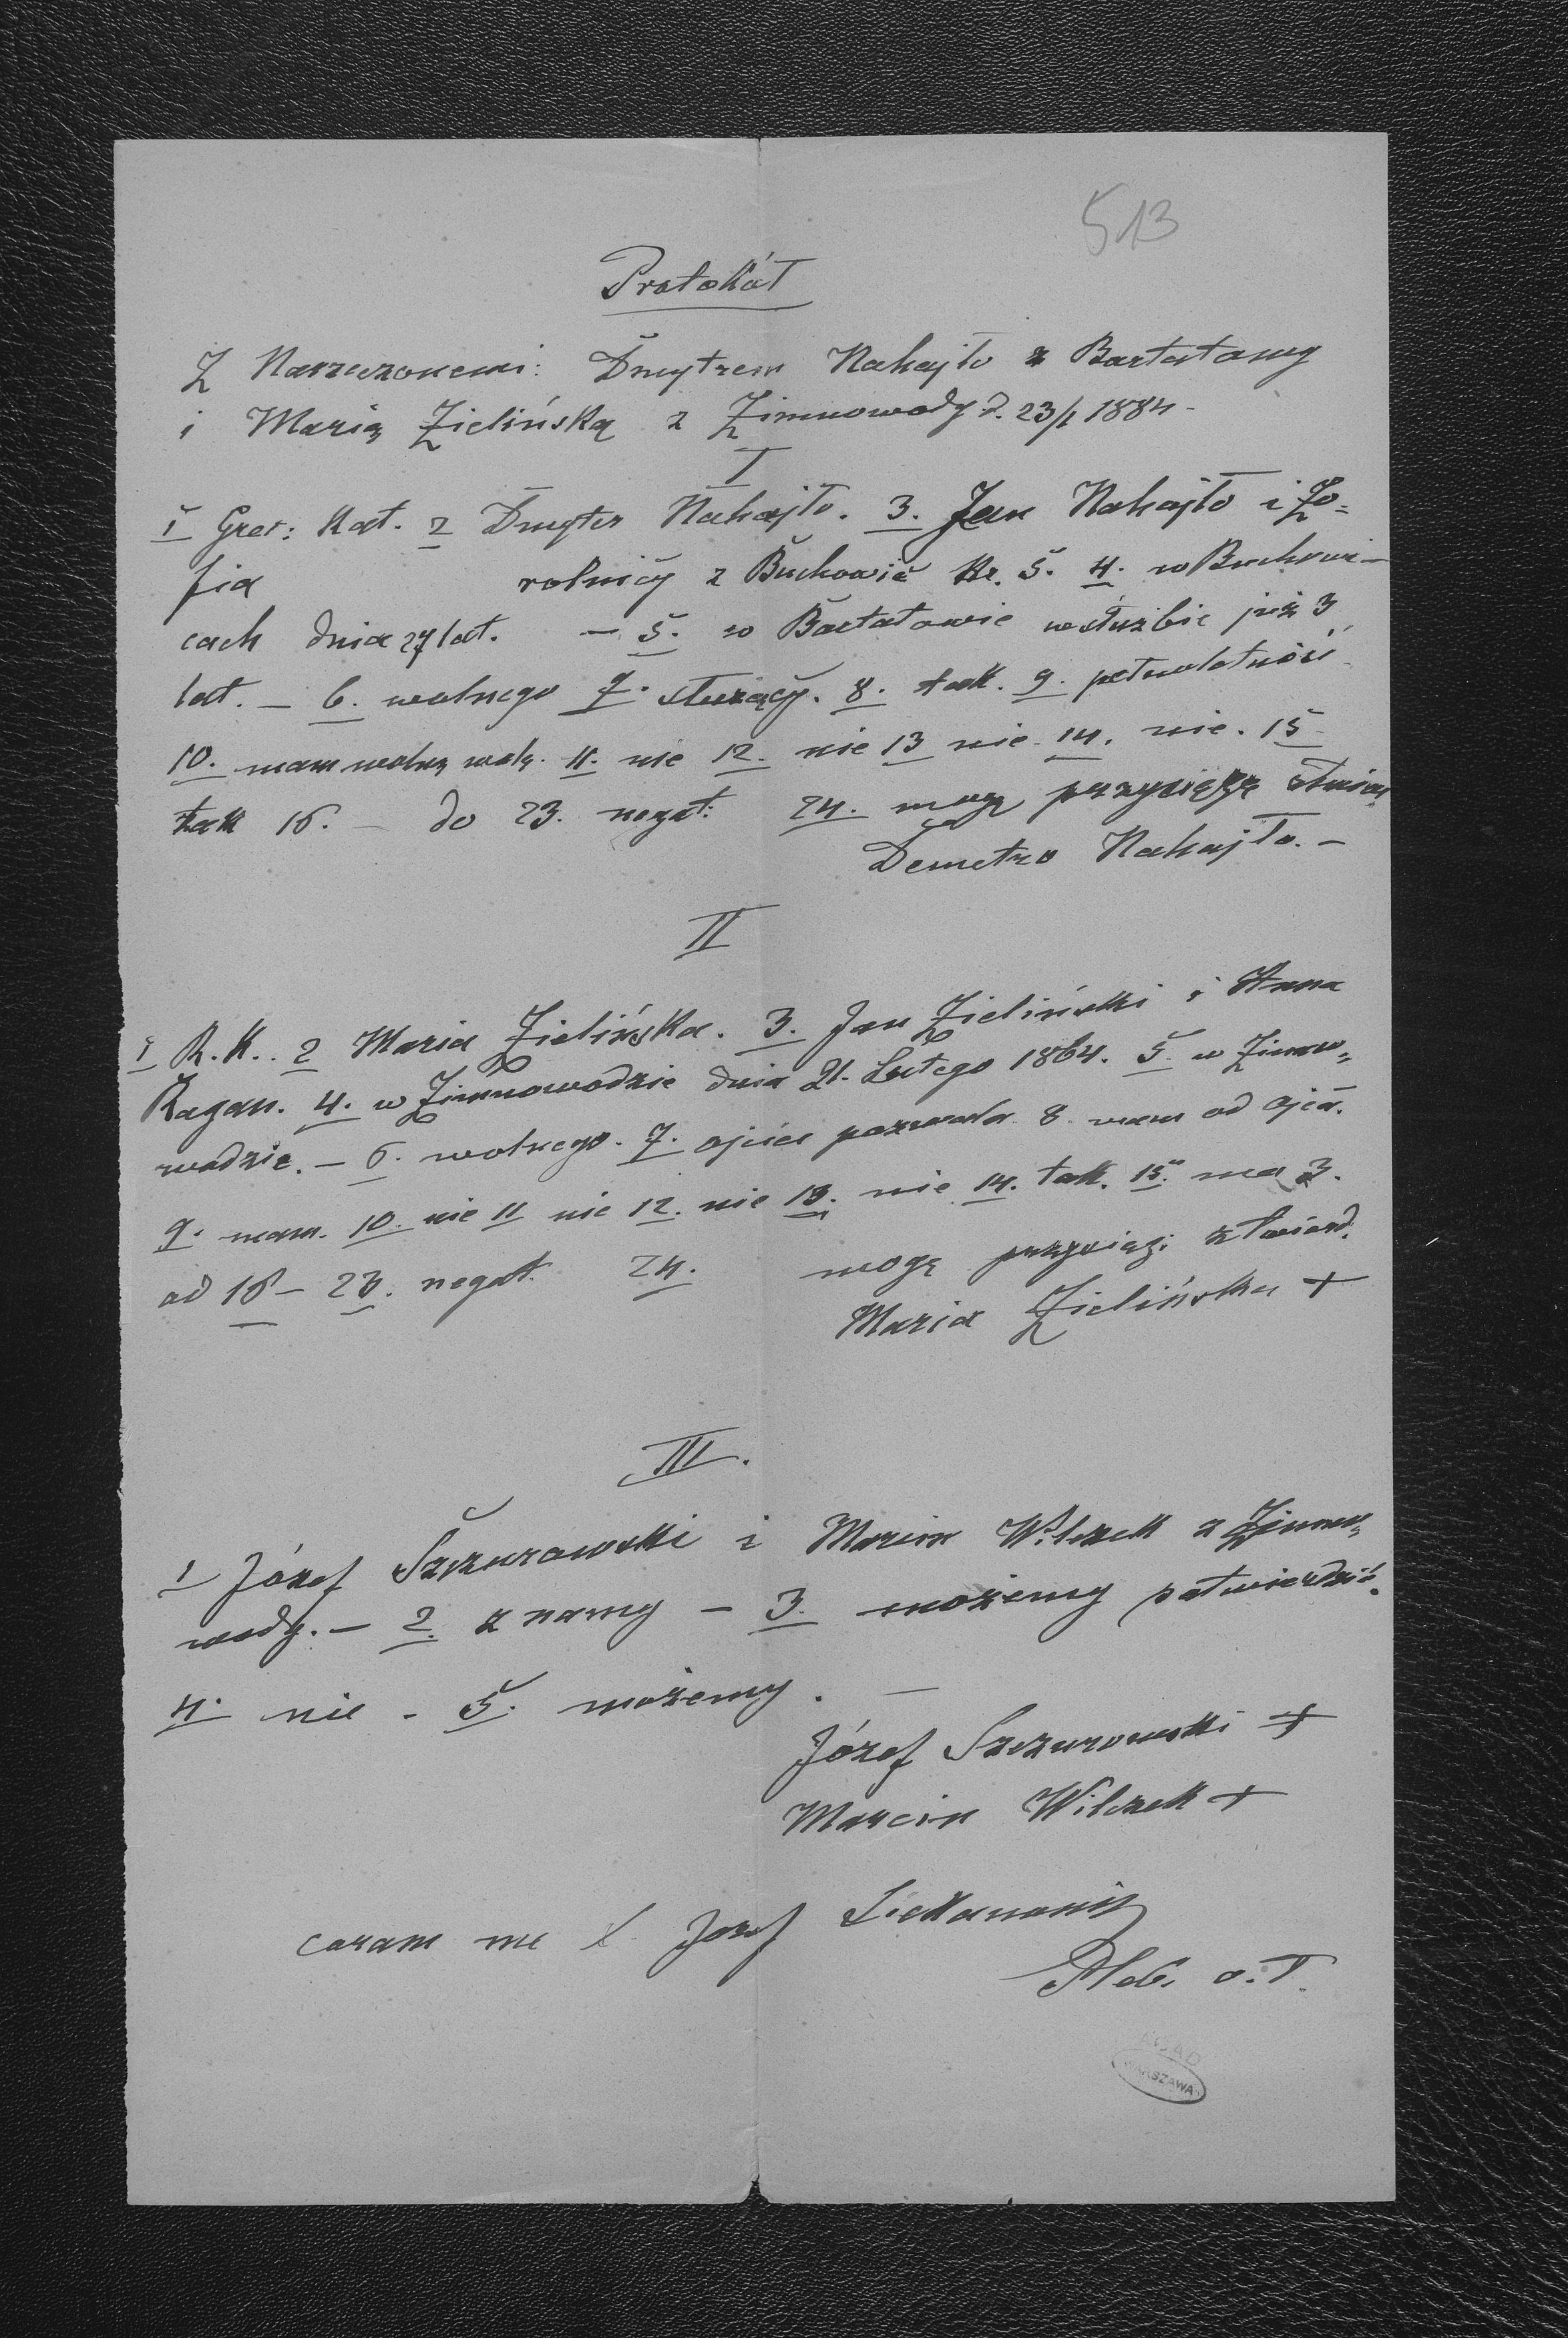 513
Protokół
Z Narzeczonemi: Dmytrem Nakajło z Bartatowy
i Marią Zielińską z Zimnowody d. 23/1 1884 -
I
1 Grec: Kat. 2 Dmyter Nakajło. 3. Jan Nakajło i Zo=
fia rolnicy z Buchowic Nr. 5. 4. w Buchowi-
cach dnia 27 lat. - 5. w Bartatowie w służbie już 3
lat. - 6. wolnego 7. służący. 8. tak. 9. pełnoletność
10. mam wolną wolę. 11. nie 12. nie 13 nie 14. nie. 15
tak 16. - do 23. negat: 24. mogę przysięgę
Demetro Nakajło. -
II
1 R. K. 2 Maria Zielińska. 3. Jan Zieliński i Anna
Kazan. 4. w Zimnowodzie dnia 21. Lutego 1864. 5. w Zimno=
wodzie. - 6. wolnego. 7. ojciec pozwala 8. mam od ojca.
9. mam. 10. nie 11 nie 12. nie 13. nie 14. tak. 15. ma 3.
od 16 - 23. negat. 24. mogę przysięgą stwierd.
Maria Zielińska +
III.
1 Józef Szczurowski i Marcin Wilczek z Zimno=
wody. - 2. znamy - 3. możemy potwierdzić.
4. nie - 5. możemy. -
Józef Szczurowski +
Marcin Wilczek +
coram me X. Józef
Pleb. o. T.
AGAD
WARSZAWA